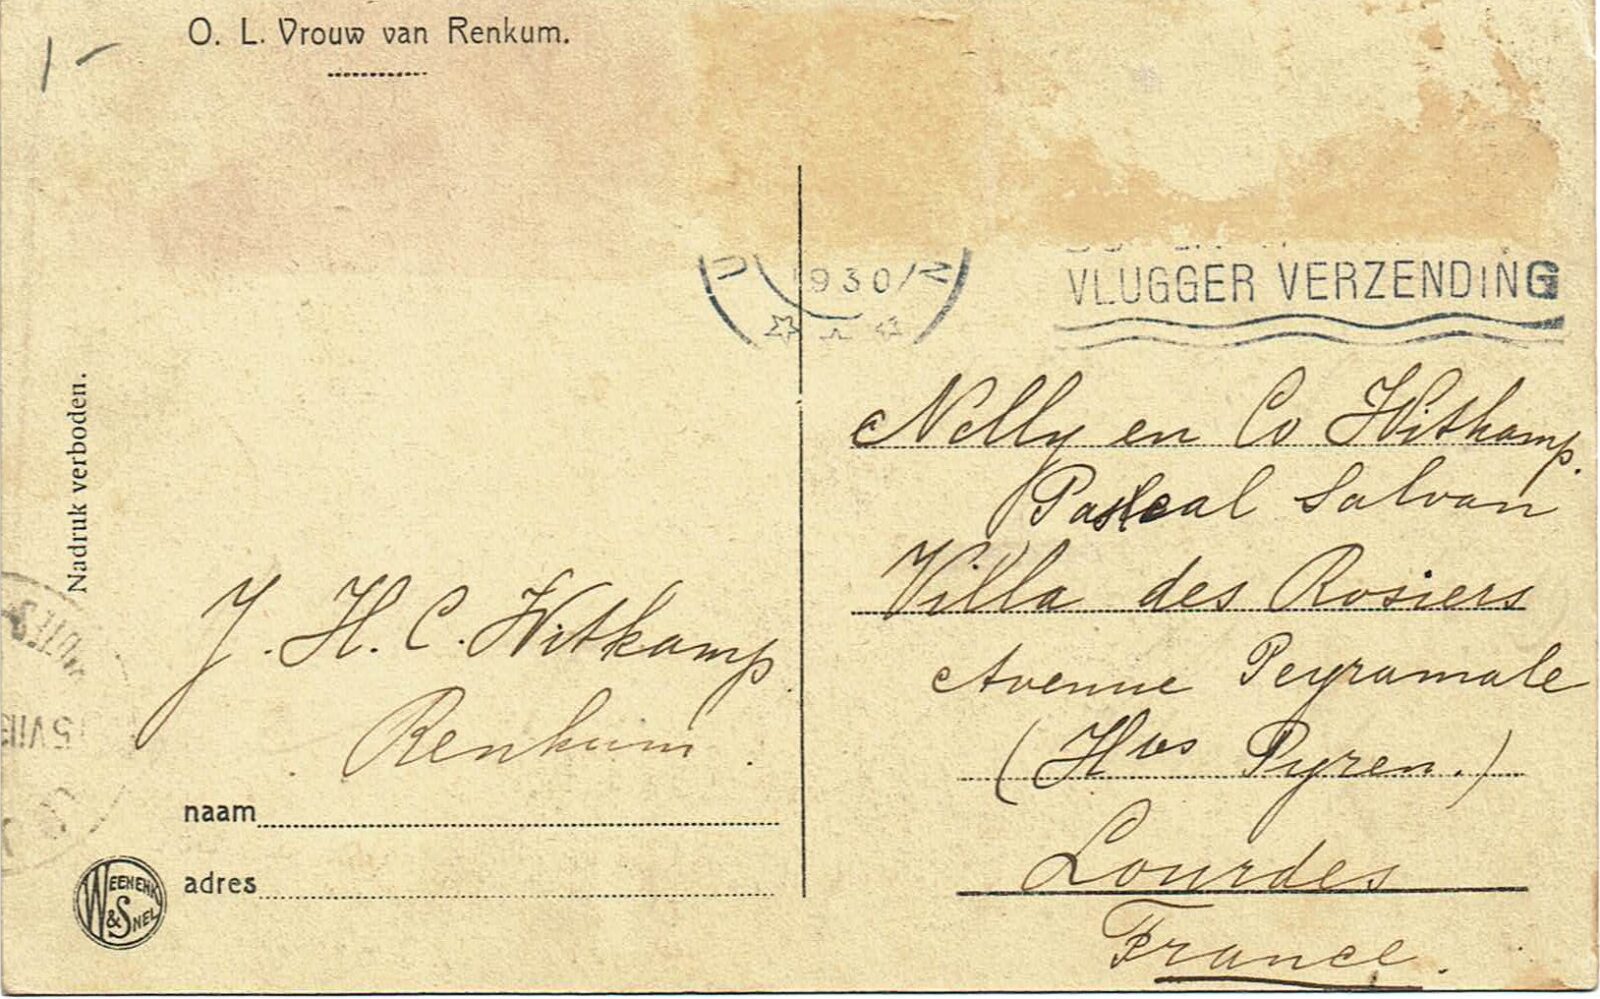 O. L. Vrouw van Renkum.
1930
VLUGGER VERZENDING
Nadruk verboden.
Nelly en Co Witkamp.
Pascal Salvan
Villa des Rosiers
Avenue Peyramale
(Htes Pyren.)
Lourdes
France.
J. H. C. Witkamp.
Renkum.
naam
adres
WEENENK & SNEL